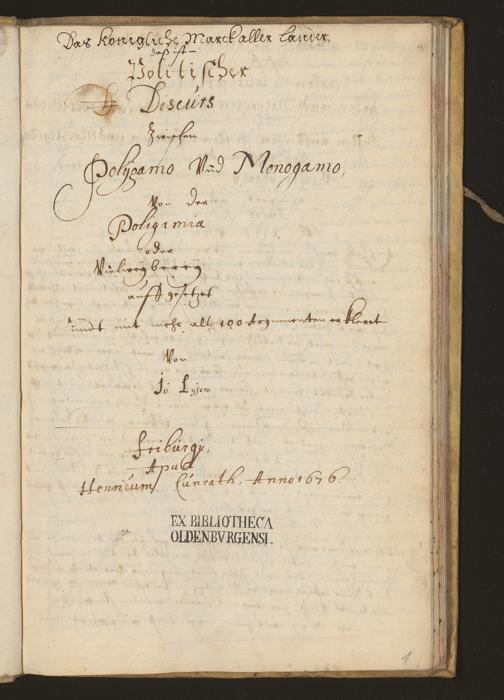 Das Königliche Marck aller Länder
daß ist
Politischer
Discurs
Zwischen
Polÿgamo Vnd Monogamo,
Von der
Poligamia
oder
Vielweÿbereÿ
auffgesetzet
undt mit mehr alß 100 Argumenten erklert
Von
Jo. Lyser
Friburgi,
Apud
Henricum Cunrath. Anno 1676.
EX BIBLIOTHECA
OLDENBVRGENSI.
1